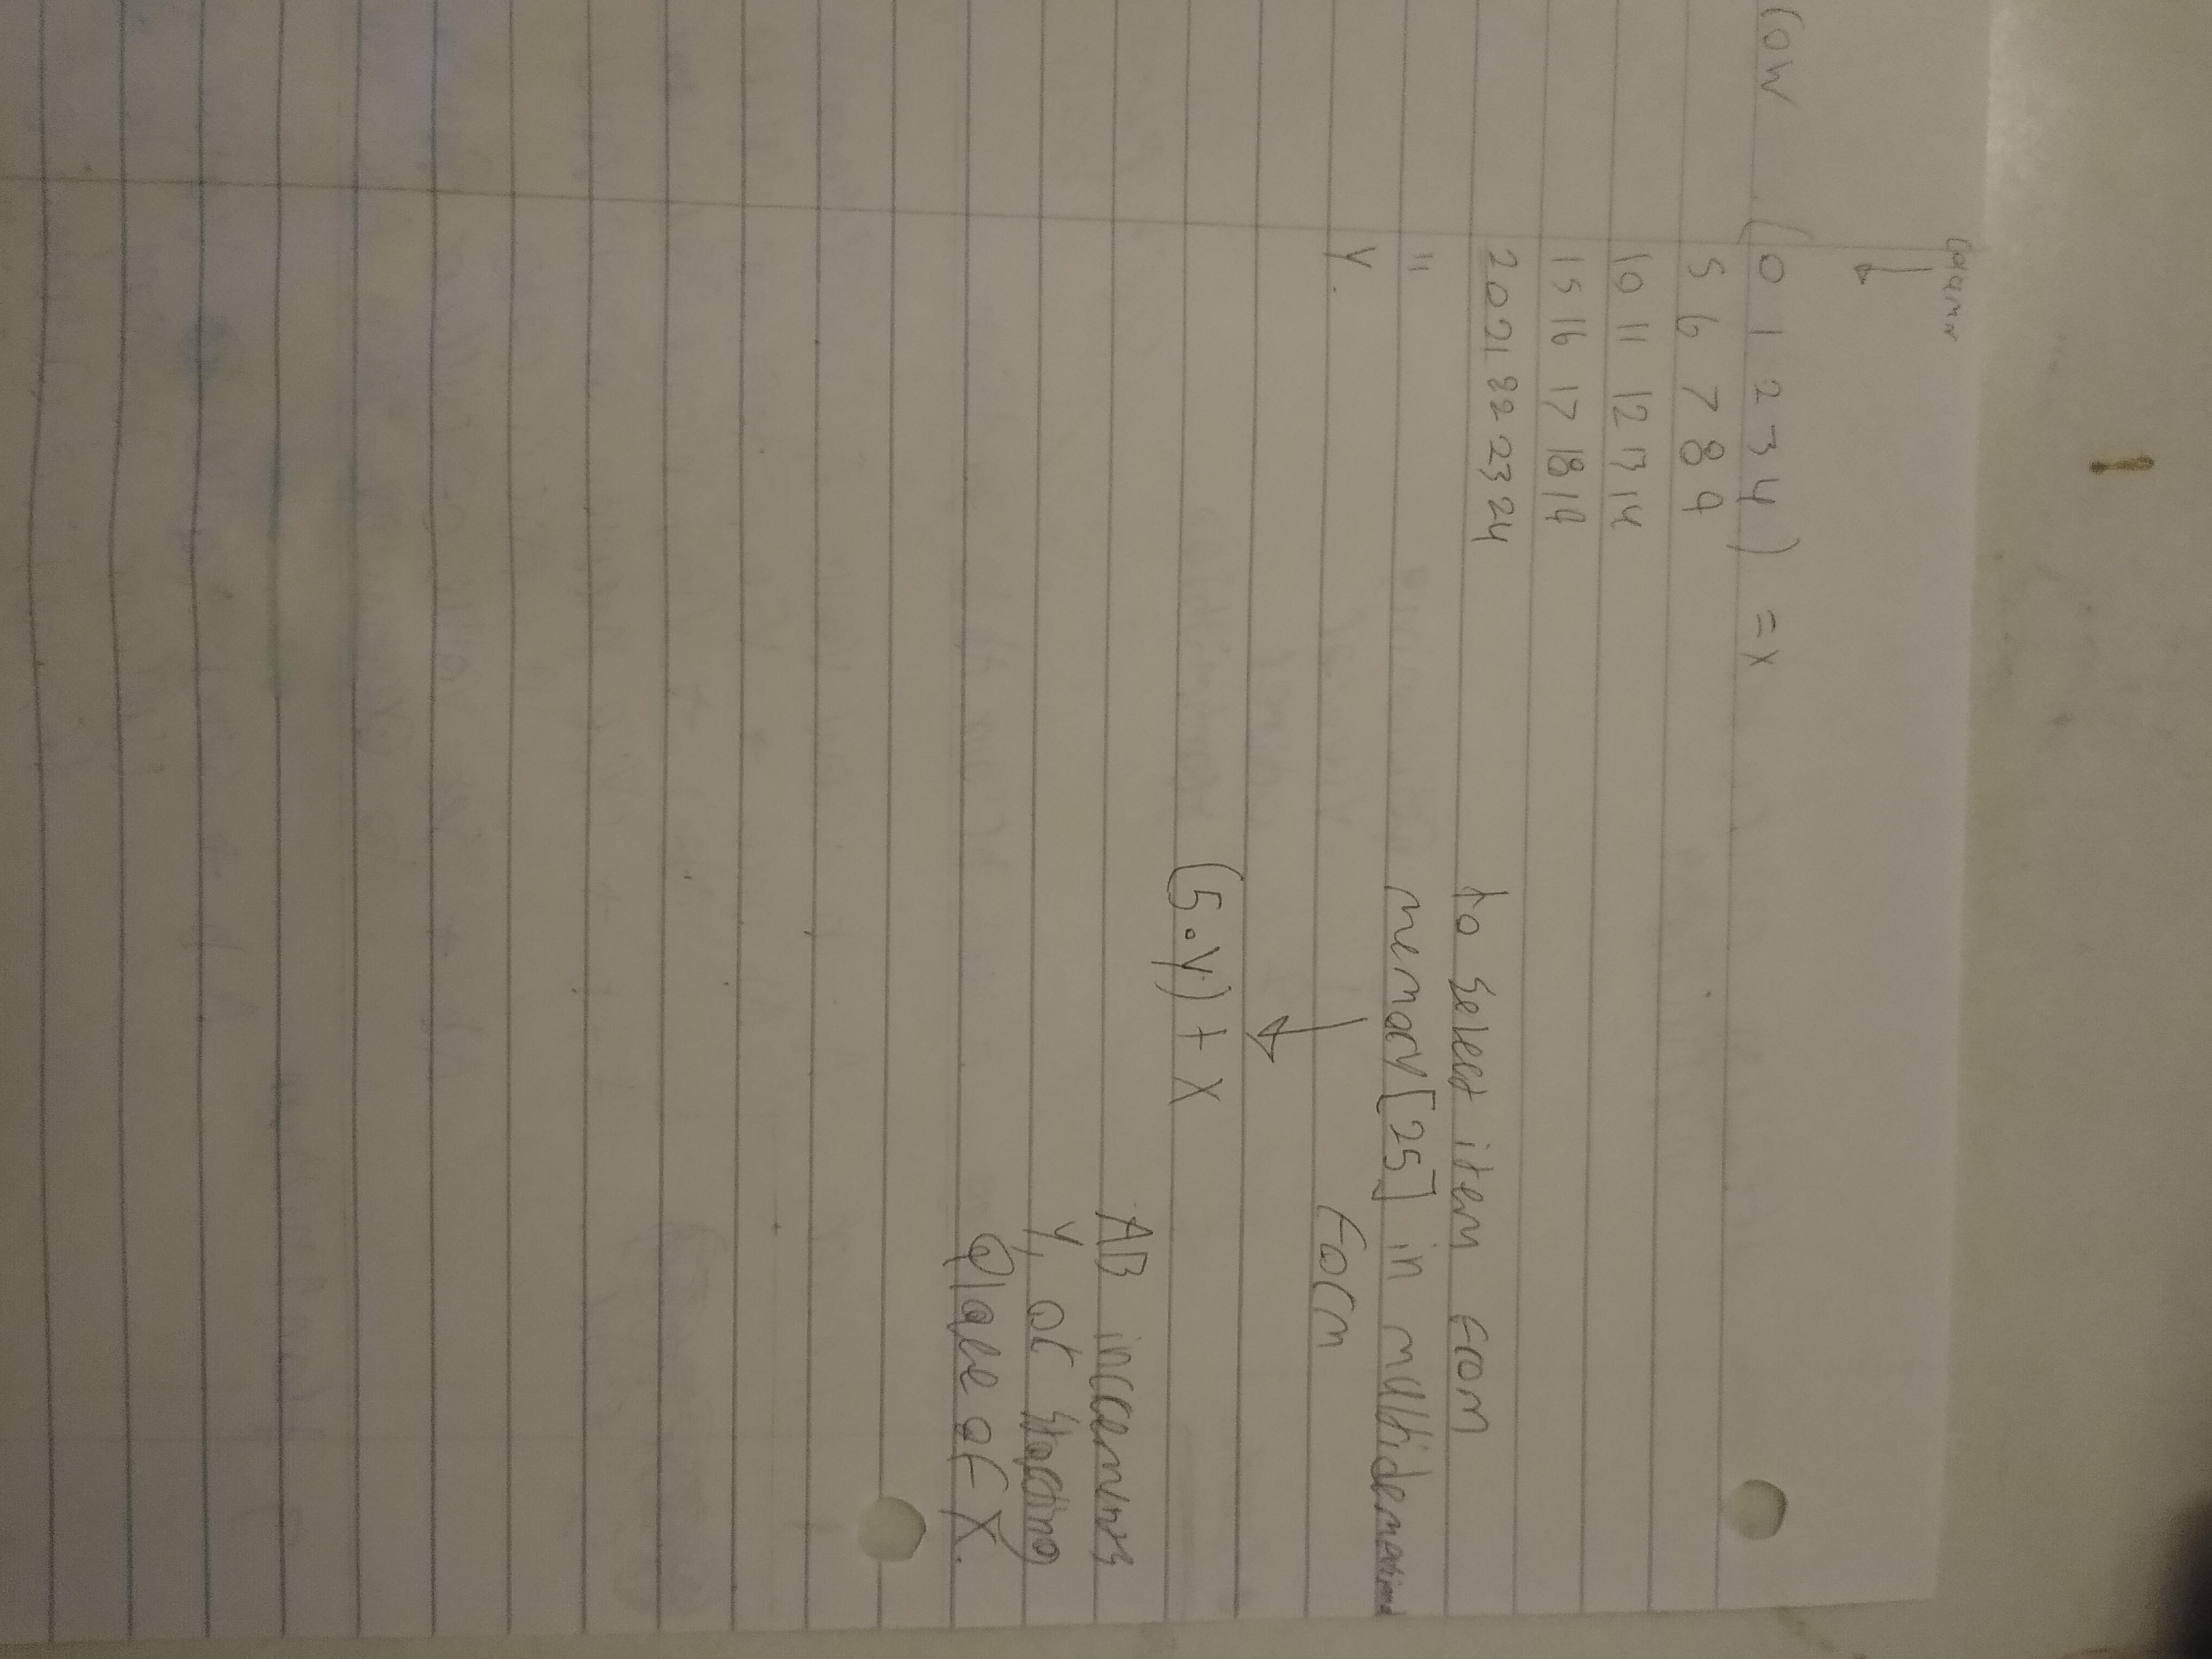 column
↓
row (0 1 2 3 4) = x
5 6 7 8 9
10 11 12 13 14
15 16 17 18 19
20 21 22 23 24
"
y.
to select item from
memory[25] in multidemational
form
↓
(5•y) + x
AB increments
y, at starting
place of x.